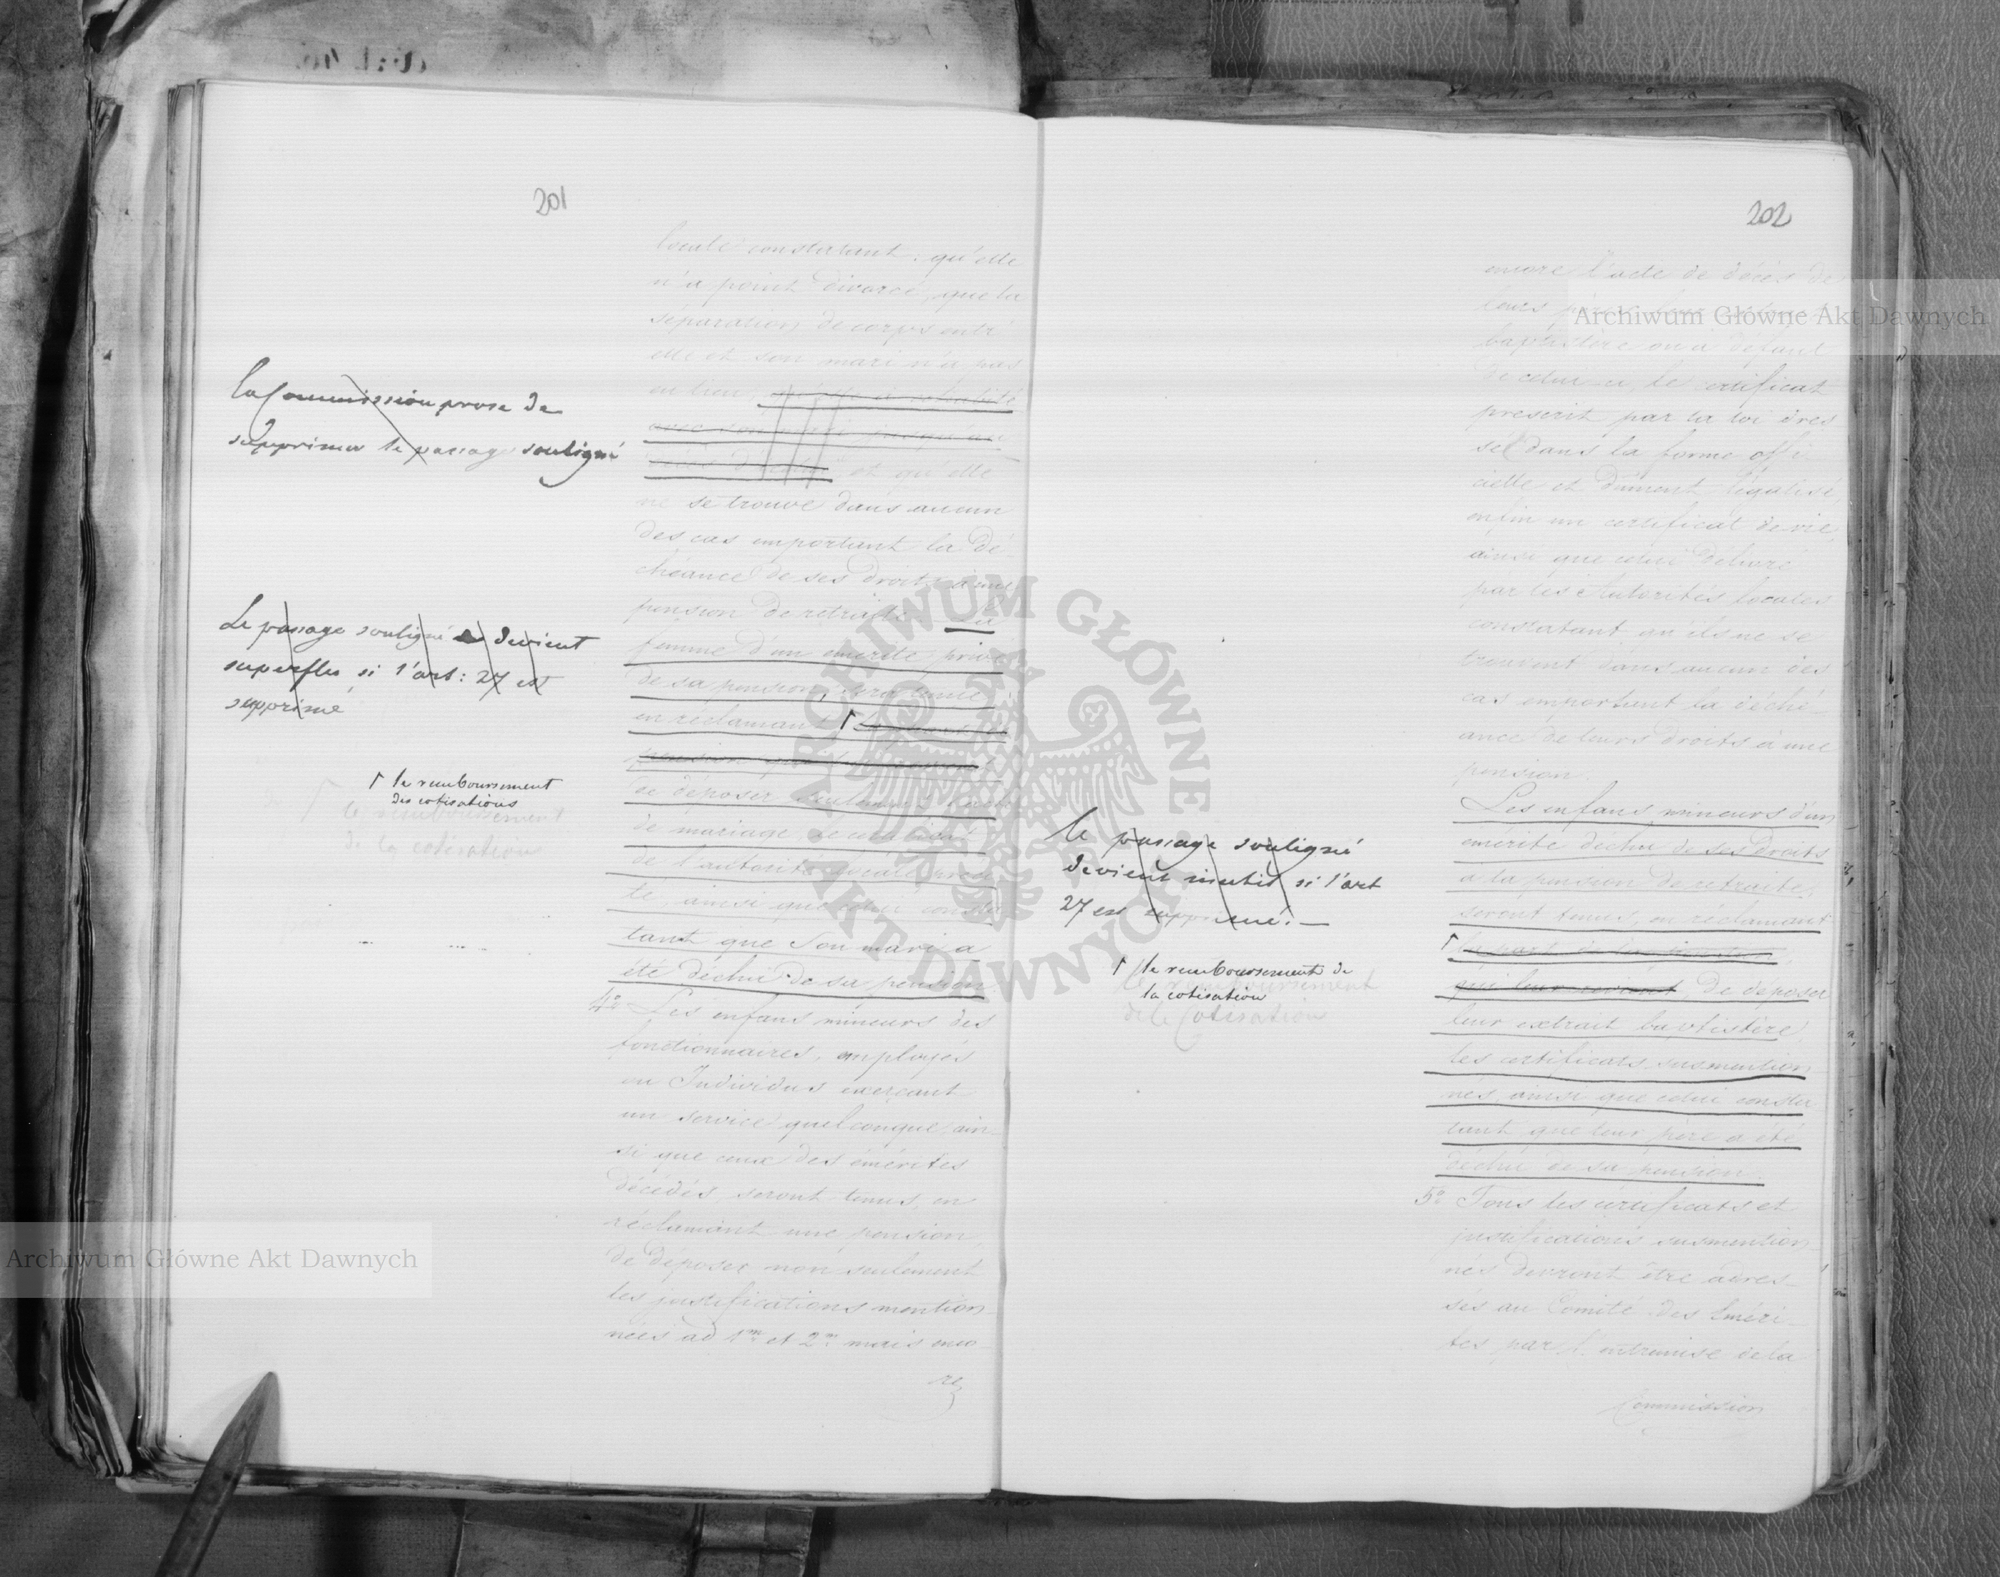 201
locale constatant, qu'elle
n'a point divorcé, que la
séparation de corps entr'
elle et son mari n'a pas
eu lieu, qu'elle a cohabité
avec son mari jusqu'au
décès d'icelui et qu'elle
ne se trouve dans aucun
des cas emportant la dé-
chéance de ses droits à une
pension de retraite. La
femme d'un émérite, privé
de sa pension, sera tenue,
en réclamant ↑ la part de
pension qui
de déposer seulement l'acte
de mariage, le certificat
de l'autorité locale
te, ainsi que celui consta-
tant que son mari a
été déchu de sa pension
4° Les enfans mineurs des
fonctionnaires, employés
ou Individus exerçant
un service quelconque, ain-
si que ceux des émérites
décédés, seront tenus, en
réclamant une pension,
de déposer non seulement
les justifications mention-
nées ad 1m et 2m mais enco-
re
La Commission prose de
supprimer le passage souligné
Le passage souligné devient
superflu si l'art: 27 est
supprimé
↑ le remboursement
des cotisations
↑ le remboursement
de la cotisation
202
encore l'acte de décès de
leurs père
baptistère ou à défaut
de celui-ci, le certificat
prescrit par la loi dres
sé dans la forme offi-
cielle et dûment légalisé,
enfin un certificat de vie,
ainsi que celui délivré
par les Autorités locales
constatant qu'ils ne se
trouvent dans aucun des
cas emportant la déché-
ance de leurs droits à une
pension.
Les enfans mineurs d'un
émérite déchu de ses droits
à la pension de retraite,
seront tenus, en réclamant
↑ la part de la pension
qui leur revient, de déposer
leur extrait baptistère,
les certificats susmention-
nés, ainsi que celui consta-
tant que leur père a été
déchu de sa pension.
5° Tous les certificats et
justifications susmention-
nés devront être adres-
sés au Comité des Eméri-
tes par l'entremise de la
Commission
le passage souligné
devient inutil si l'art
27 est supprimé. —
↑ le remboursement de
la cotisation
le remboursement
de la Cotisation
Archiwum Główne Akt Dawnych
Archiwum Główne Akt Dawnych
ARCHIWUM GŁÓWNE · AKT DAWNYCH ·